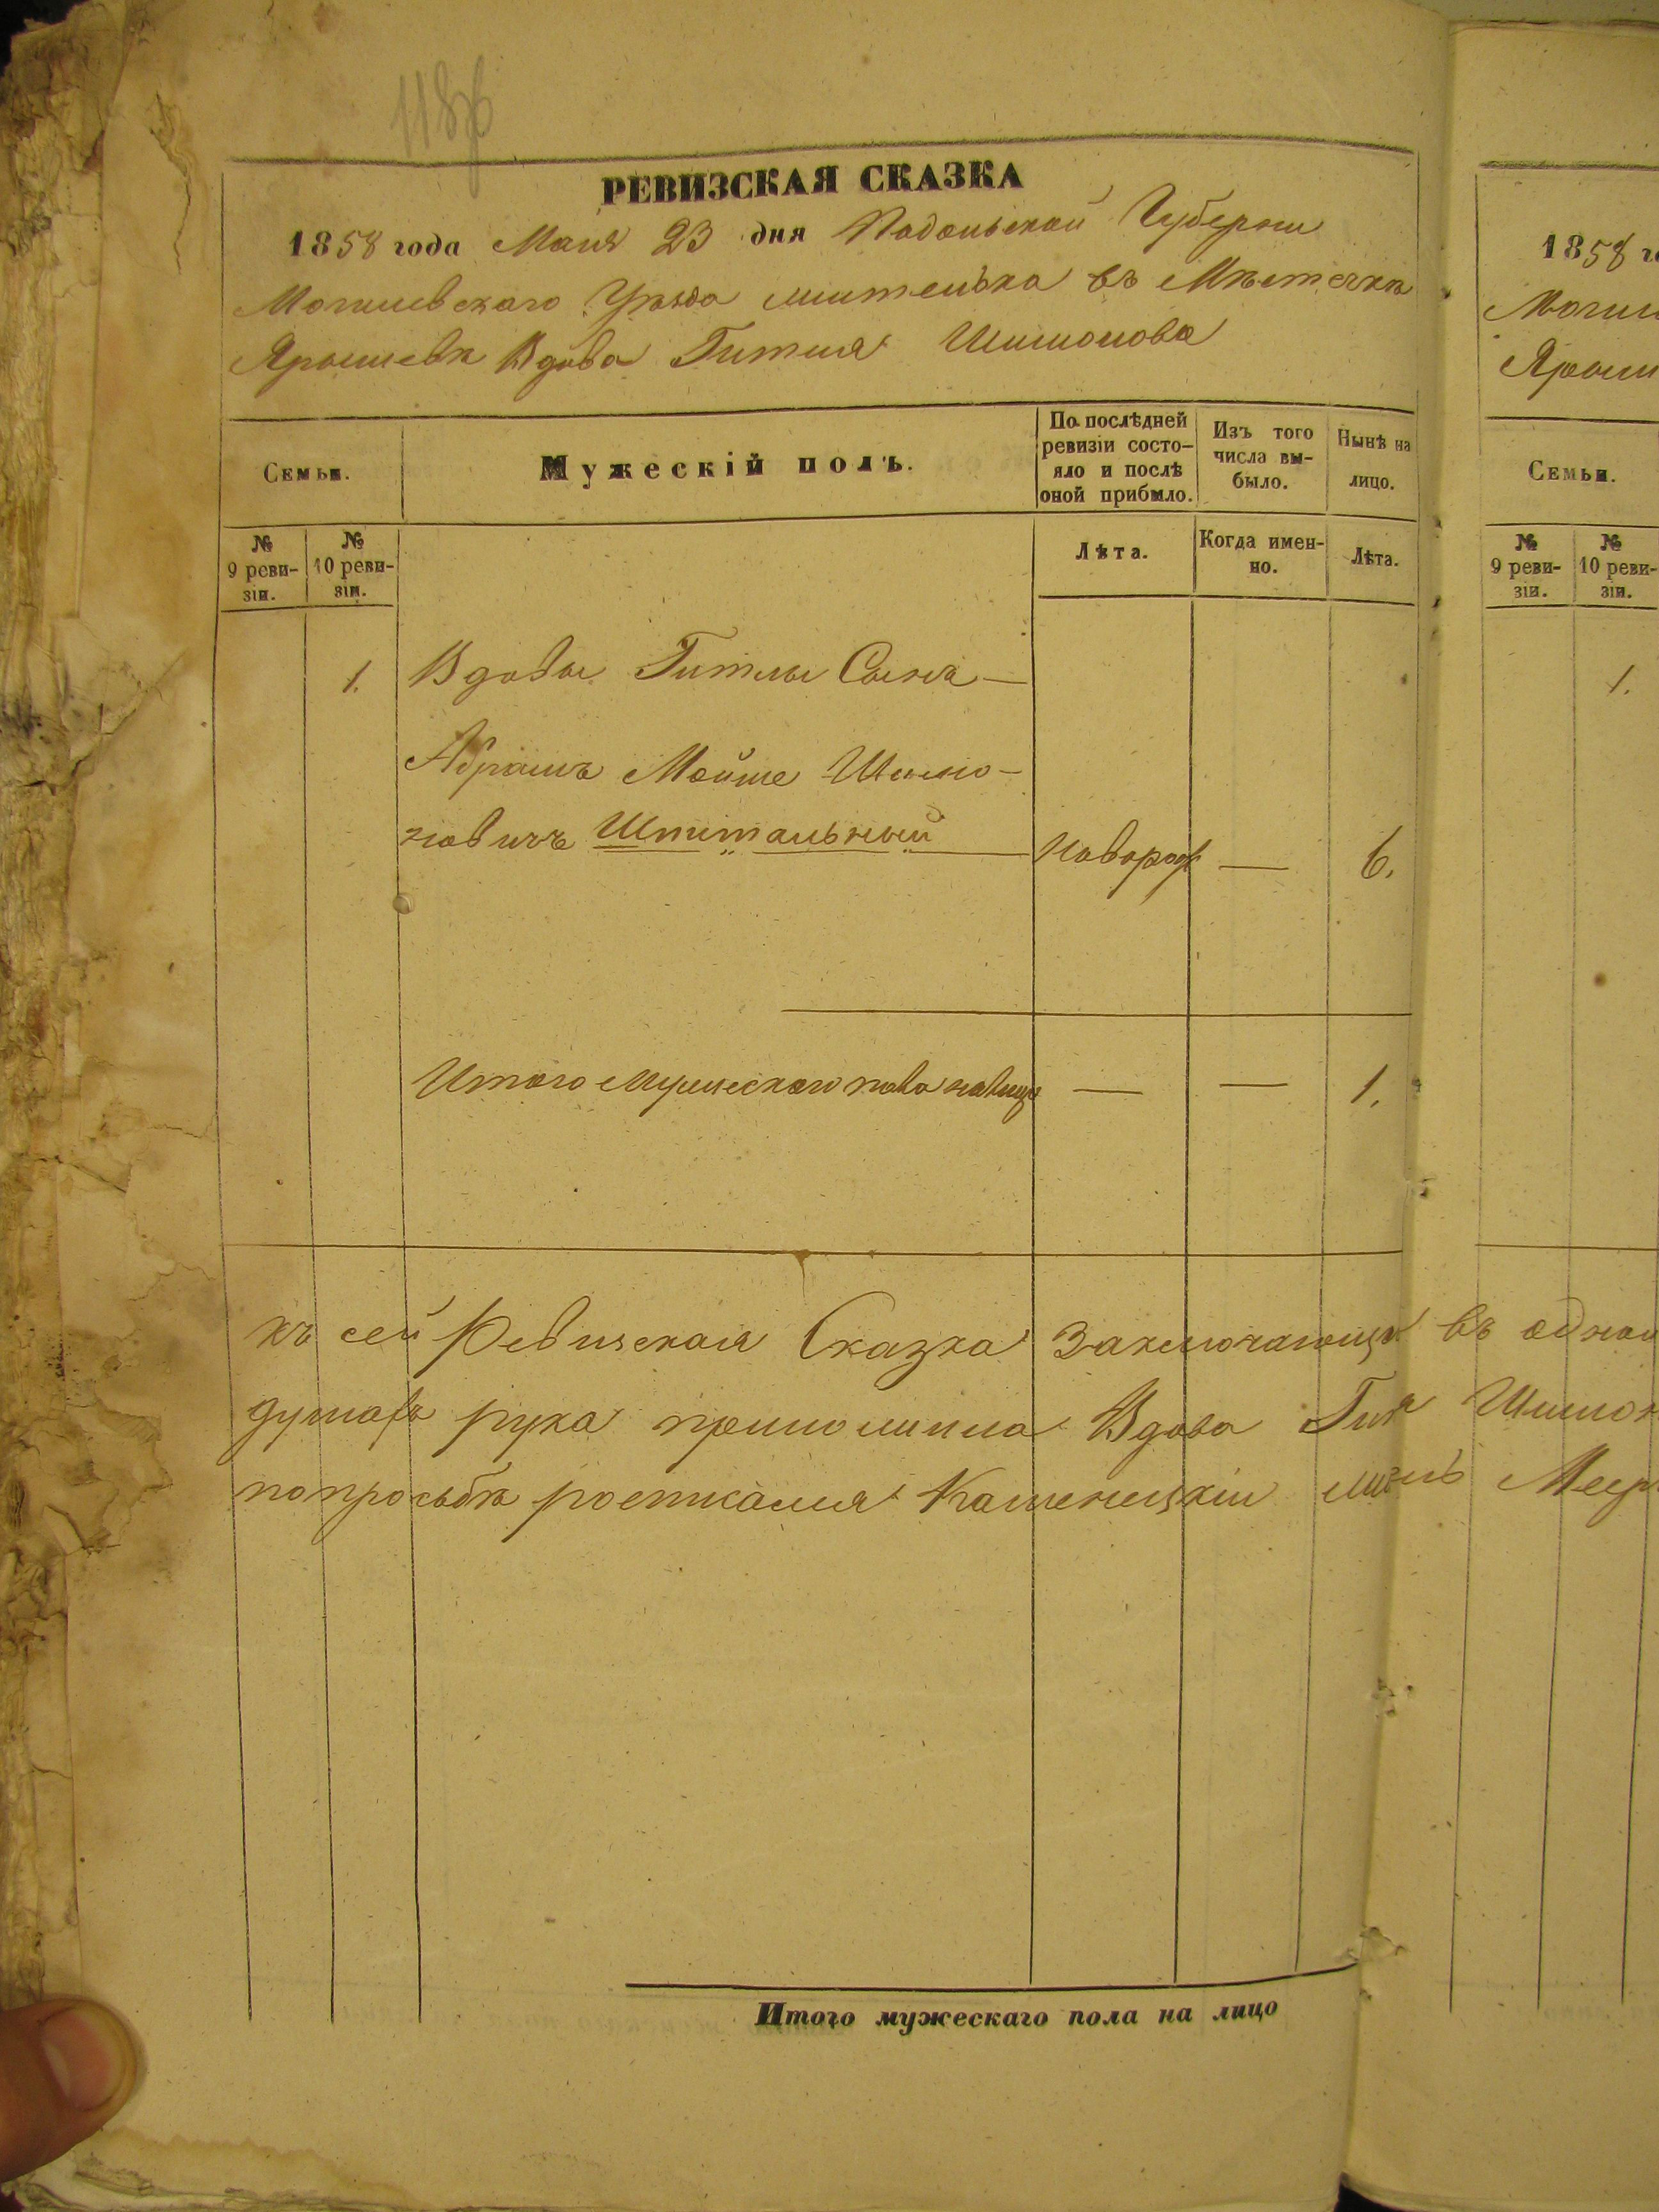 118
РЕВИЗСКАЯ СКАЗКА
1858 года Маия 23 дня Подольской Губерни
Могилевскаго Уѣзда жителька въ Мѣстечкѣ
Ярышевѣ Вдова Гитля Шимонова
Семьи.
Мужескій полъ.
По послѣдней ревизіи состо-
яло и послѣ
оной прибыло.
Изъ того
числа вы-
было.
Нынѣ на
лицо.
№
9 реви-
зіи.
№
10 реви-
зіи.
Лѣта.
Когда имен-
но.
Лѣта.
1. Вдовы Гитлы Сынъ —
Абрамъ Мойше Шимо-
новичъ Шпитальный новорож — 6.
Итого мужескаго пола налицо — — 1.
къ сей Ревизская Сказка заключающи въ одной
душахъ рука приложила Вдова Шимон
по просьбѣ росписался Каменецкій Меер
Итого мужескаго пола на лицо
1858 г
Могил
Ярыш
Семьи.
№
9 реви-
зіи.
№
10 реви-
зіи.
1.